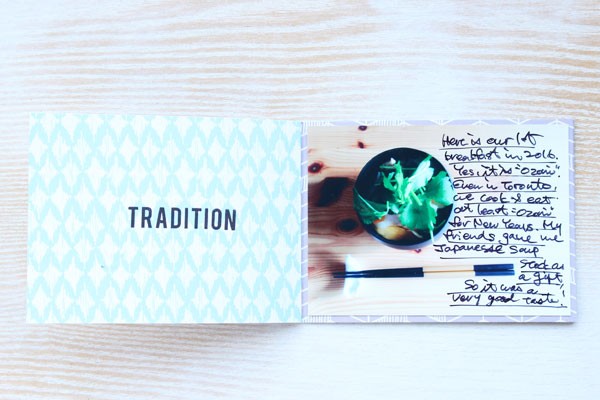 TRADITION
Here is our 1st
breakfast in 2016.
Yes, it is "Ozoni".
Even in Toronto,
we cook & eat
at least "Ozoni"
for New Years. My
friends gave me
Japanese Soup
Stock as
a gift,
So it was a
Very good taste!